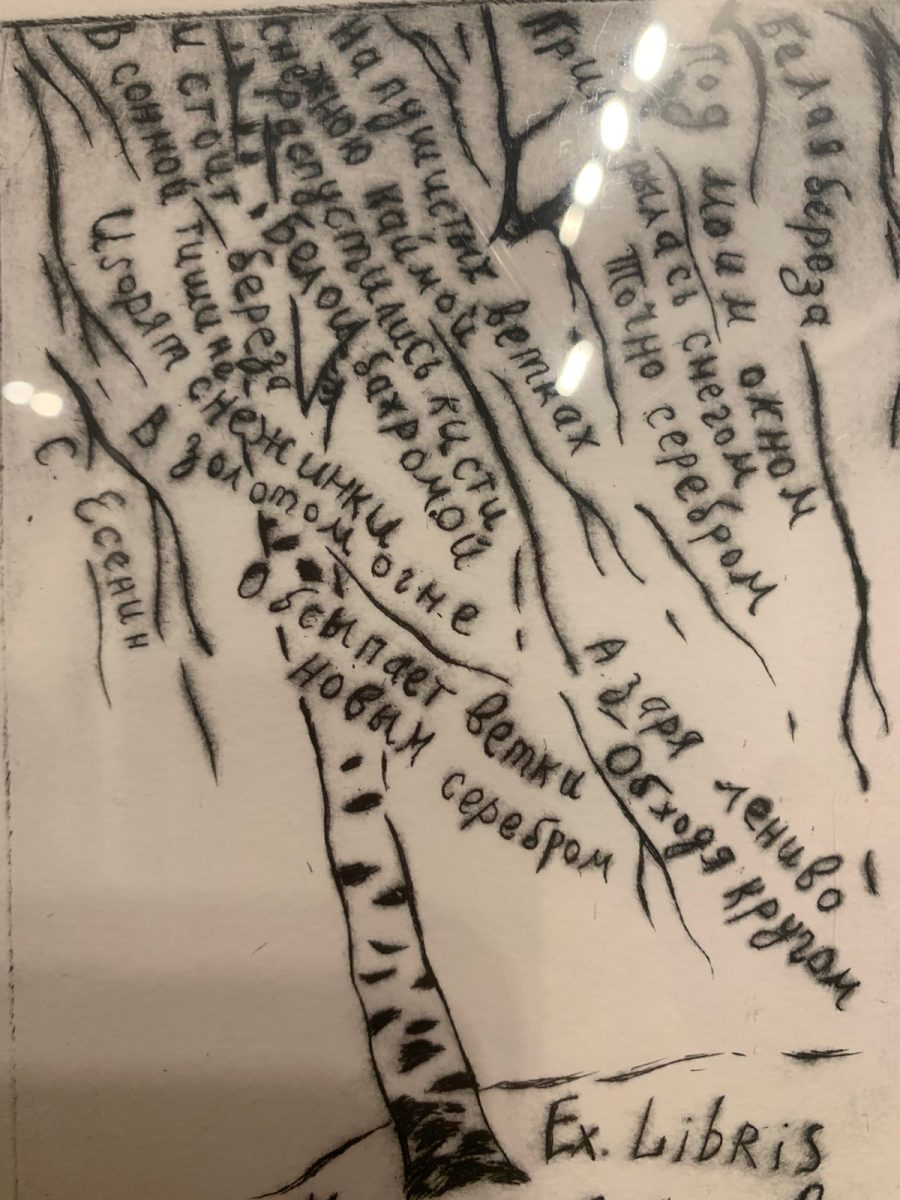 Белая береза
Под моим окном
При рылась снегом
Точно серебром
На пушистых ветках
снежною каймой
распустились кисти
Белой бахромой
и стоит береза
В сонной тишине
И горят снежинки
В золотом огне
А заря лениво
Обходя кругом
Обсыпает ветки
новым серебром
С Есенин
Ex. Libris